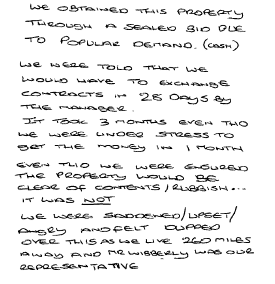 WE OBTAINED THIS PROPERTY
THROUGH A SEALED BID DUE
TO POPULAR DEMAND. (CASH)
WE WERE TOLD THAT WE
WOULD HAVE TO EXCHANGE
CONTRACTS IN 28 DAYS BY
THE MANAGER.
IT TOOK 3 MONTHS EVEN THO
WE WERE UNDER STRESS TO
GET THE MONEY IN 1 MONTH
EVEN THO WE WERE ENSURED
THE PROPERTY WOULD BE
CLEAR OF CONTENTS / RUBBISH...
IT WAS NOT
WE WERE SADDENED/UPSET/
ANGRY AND FELT DUPPED
OVER THIS AS WE LIVE 260 MILES
AWAY AND MR WIBBERLY WAS OUR
REPRESENTATIVE